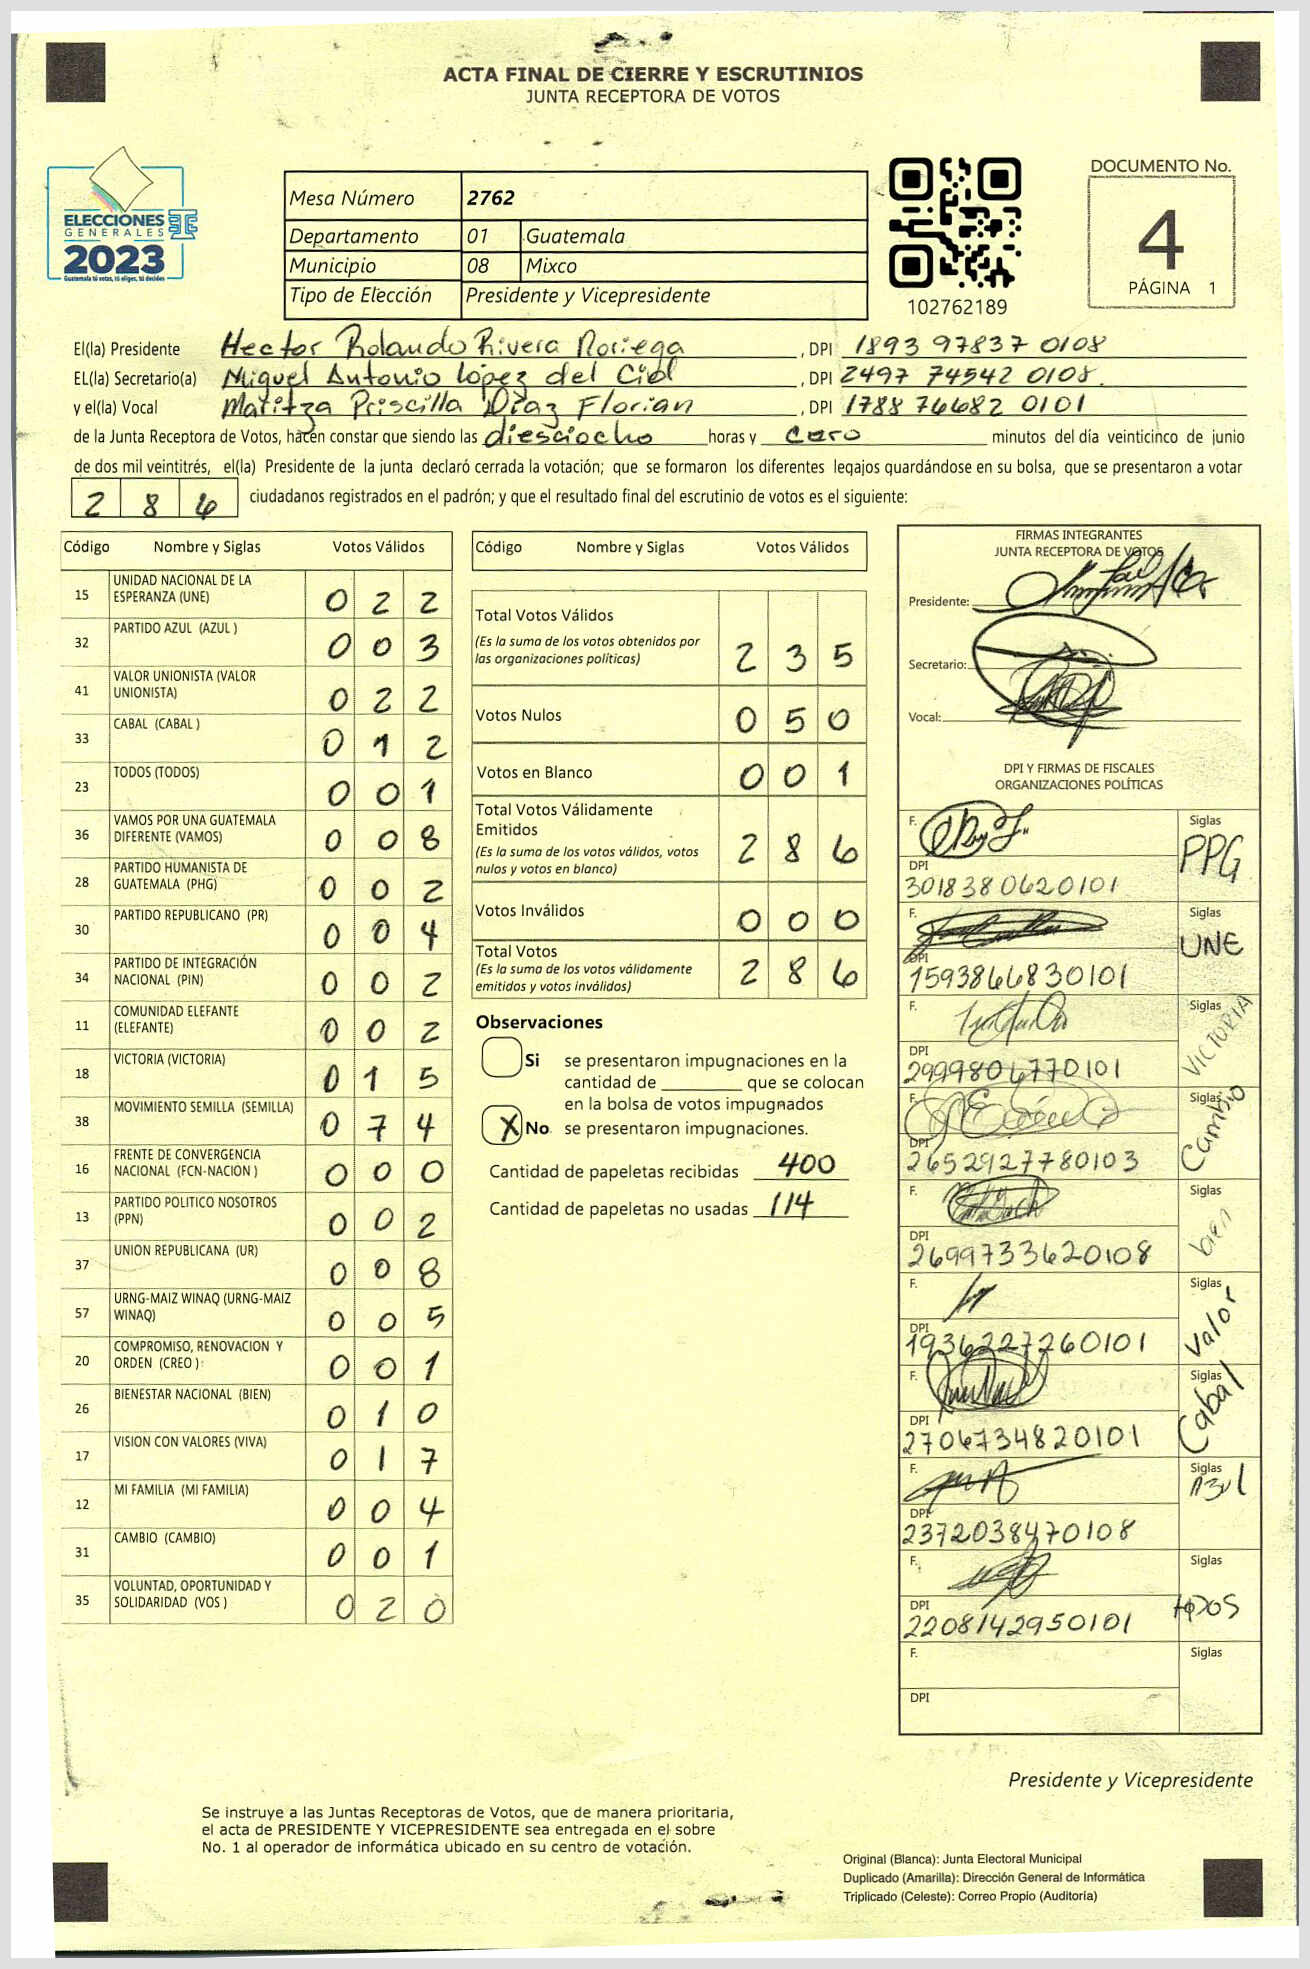 ACTA FINAL DE CIERRE Y ESCRUTINIOS
JUNTA RECEPTORA DE VOTOS
ELECCIONES
GENERALES
2023
Guatemala tú votas, tú eliges, tú decides
Mesa Número 2762
Departamento 01 Guatemala
Municipio 08 Mixco
Tipo de Elección Presidente y Vicepresidente
102762189
DOCUMENTO No.
4
PÁGINA 1
El(la) Presidente Hector Rolando Rivera Noriega, DPI 1893 97837 0108
EL(la) Secretario(a) Miguel Antonio López del Cid, DPI 2497 74542 0108
y el(la) Vocal Maritza Priscilla Díaz Florian, DPI 1788 76682 0101
de la Junta Receptora de Votos, hacen constar que siendo las diesciocho horas y cero minutos del día veinticinco de junio
de dos mil veintitrés, el(la) Presidente de la junta declaró cerrada la votación; que se formaron los diferentes legajos guardándose en su bolsa, que se presentaron a votar
286 ciudadanos registrados en el padrón; y que el resultado final del escrutinio de votos es el siguiente:
Código Nombre y Siglas Votos Válidos
15 UNIDAD NACIONAL DE LA ESPERANZA (UNE) 0 2 2
32 PARTIDO AZUL (AZUL ) 0 0 3
41 VALOR UNIONISTA (VALOR UNIONISTA) 0 2 2
33 CABAL (CABAL ) 0 1 2
23 TODOS (TODOS) 0 0 1
36 VAMOS POR UNA GUATEMALA DIFERENTE (VAMOS) 0 0 8
28 PARTIDO HUMANISTA DE GUATEMALA (PHG) 0 0 2
30 PARTIDO REPUBLICANO (PR) 0 0 4
34 PARTIDO DE INTEGRACIÓN NACIONAL (PIN) 0 0 2
11 COMUNIDAD ELEFANTE (ELEFANTE) 0 0 2
18 VICTORIA (VICTORIA) 0 1 5
38 MOVIMIENTO SEMILLA (SEMILLA) 0 7 4
16 FRENTE DE CONVERGENCIA NACIONAL (FCN-NACION ) 0 0 0
13 PARTIDO POLITICO NOSOTROS (PPN) 0 0 2
37 UNION REPUBLICANA (UR) 0 0 8
57 URNG-MAIZ WINAQ (URNG-MAIZ WINAQ) 0 0 5
20 COMPROMISO, RENOVACION Y ORDEN (CREO ) 0 0 1
26 BIENESTAR NACIONAL (BIEN) 0 1 0
17 VISION CON VALORES (VIVA) 0 1 7
12 MI FAMILIA (MI FAMILIA) 0 0 4
31 CAMBIO (CAMBIO) 0 0 1
35 VOLUNTAD, OPORTUNIDAD Y SOLIDARIDAD (VOS ) 0 2 0
Código Nombre y Siglas Votos Válidos
Total Votos Válidos
(Es la suma de los votos obtenidos por
las organizaciones políticas) 2 3 5
Votos Nulos 0 5 0
Votos en Blanco 0 0 1
Total Votos Válidamente
Emitidos
(Es la suma de los votos válidos, votos
nulos y votos en blanco) 2 8 6
Votos Inválidos 0 0 0
Total Votos
(Es la suma de los votos válidamente
emitidos y votos inválidos) 2 8 6
Observaciones
Si se presentaron impugnaciones en la
cantidad de ________ que se colocan
en la bolsa de votos impugnados
X No se presentaron impugnaciones.
Cantidad de papeletas recibidas 400
Cantidad de papeletas no usadas 114
FIRMAS INTEGRANTES
JUNTA RECEPTORA DE VOTOS
Presidente:
Secretario:
Vocal:
DPI Y FIRMAS DE FISCALES
ORGANIZACIONES POLÍTICAS
F. Siglas PPG
DPI 3018380620101
F. Siglas UNE
DPI 1593866830101
F. Siglas VICTORIA
DPI 2999804770101
F. Siglas Cambio
DPI 2652927780103
F. Siglas bien
DPI 2699733620108
F. Siglas Valor
DPI 1936227260101
F. Siglas Cabal
DPI 2706734820101
F. Siglas Azul
DPI 2372038470108
F. Siglas todos
DPI 2208142950101
F. Siglas
DPI
Presidente y Vicepresidente
Se instruye a las Juntas Receptoras de Votos, que de manera prioritaria,
el acta de PRESIDENTE Y VICEPRESIDENTE sea entregada en el sobre
No. 1 al operador de informática ubicado en su centro de votación.
Original (Blanca): Junta Electoral Municipal
Duplicado (Amarilla): Dirección General de Informática
Triplicado (Celeste): Correo Propio (Auditoría)